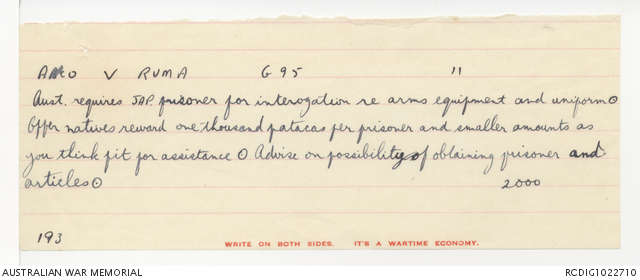 AMO V RUMA G95 11
Aust. requires JAP. prisoner for interogation re arms equipment and uniform⊙
Offer natives reward one thousand patacas per prisoner and smaller amounts as
you think fit for assistance ⊙ Advise on possibility of obtaining prisoner and
articles⊙ 2000
193
WRITE ON BOTH SIDES. IT'S A WARTIME ECONOMY.
AUSTRALIAN WAR MEMORIAL RCDIG1022710